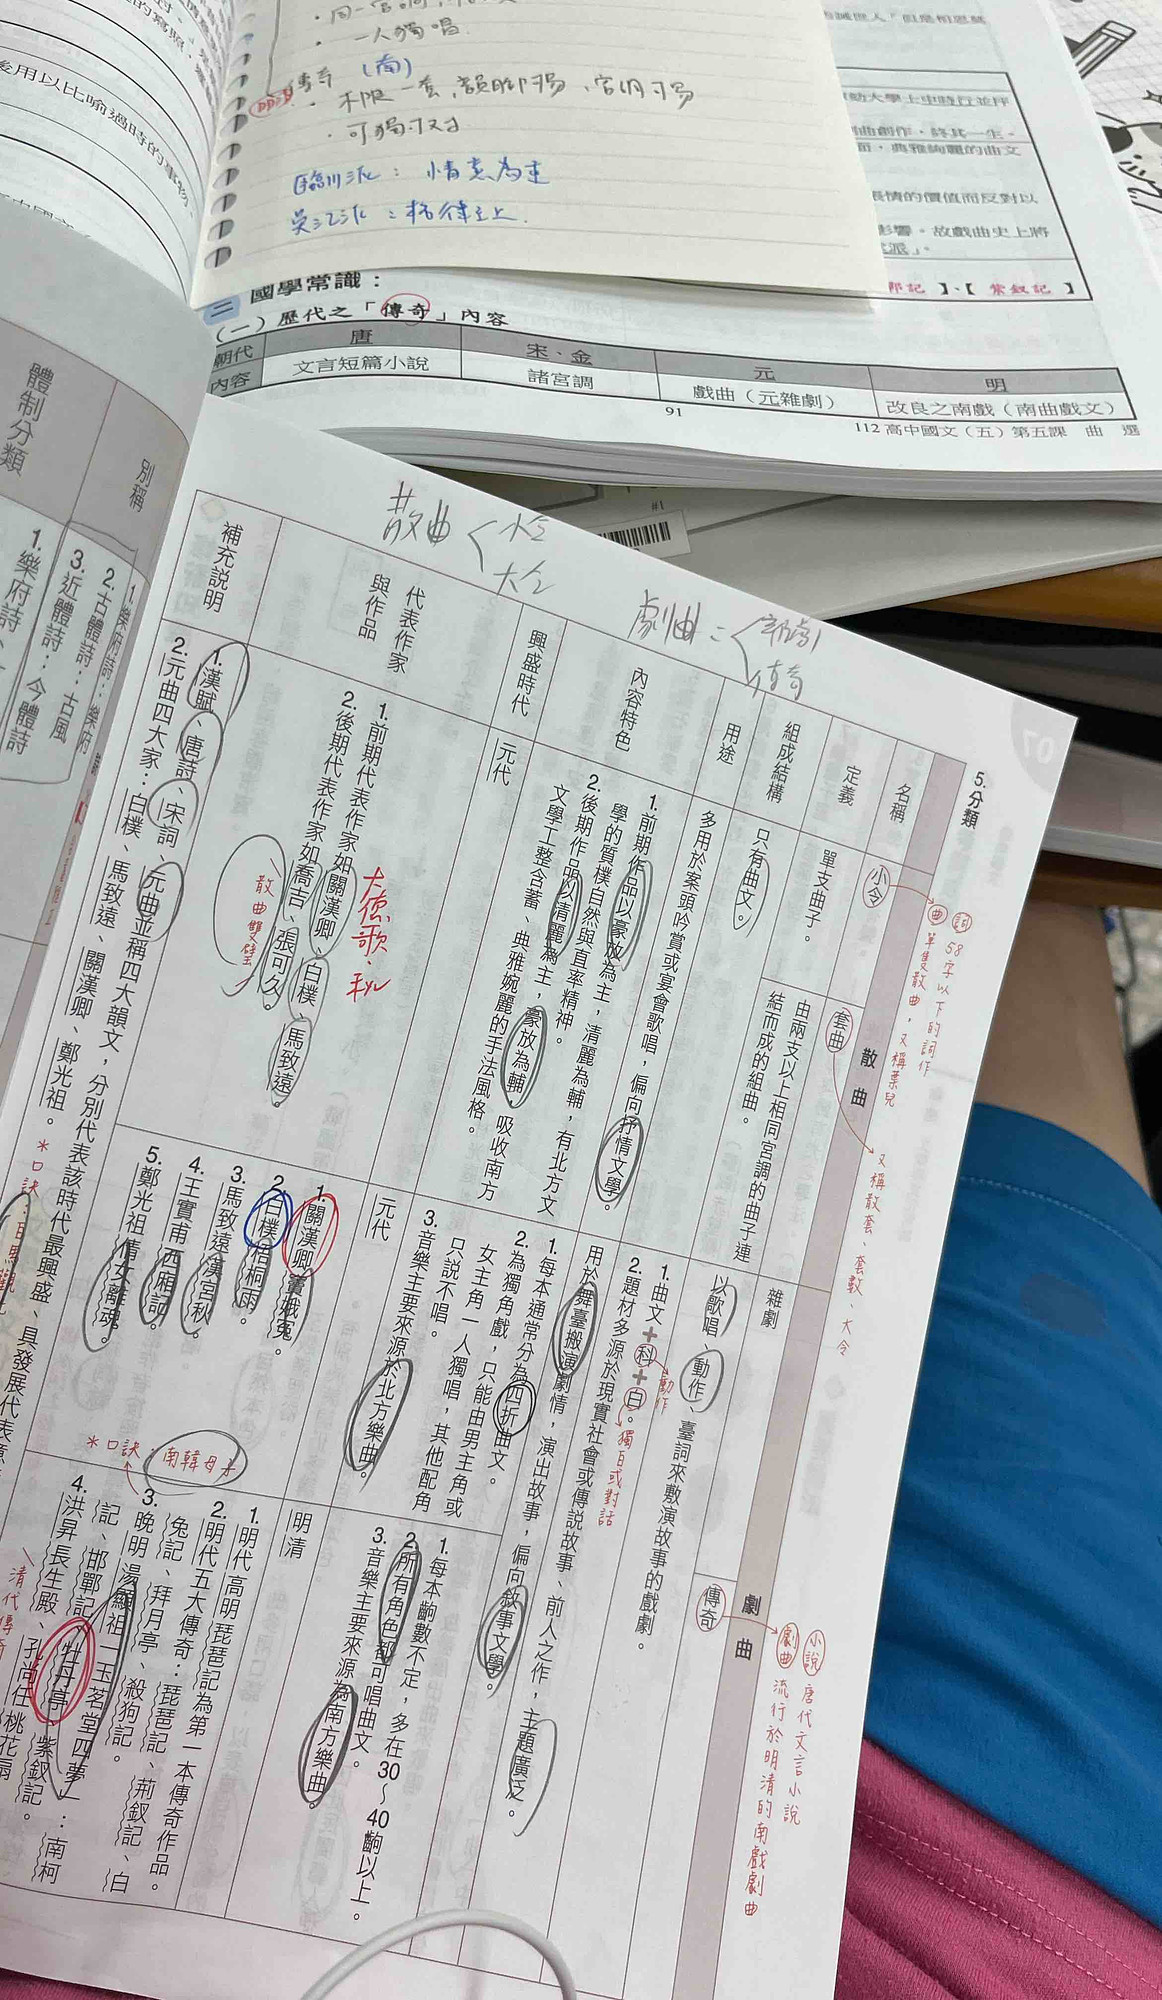 一人獨唱
傳奇 (南)
不限一套,韻腳可易、宮調可易
臨川派:情意為主
吳江派:格律至上.
誡世人
曲創作,終其一生。
面,典雅絢麗的曲文
情的價值而反對以
影響。故戲曲史上將
邯記】、【紫釵記】
後用以比喻過時的事物。
二 國學常識:
(一)歷代之「傳奇」內容
朝代 唐 宋、金 元 明
內容 文言短篇小說 諸宮調 戲曲(元雜劇) 改良之南戲(南曲戲文)
91
112 高中國文(五)第五課 曲 選
#1
散曲 小令
大令
劇曲: 雜劇
傳奇
07
5. 分類
名稱 散曲 小令 套曲 劇曲 雜劇 傳奇
詞 58字以下的詞作
曲 單隻散曲,又稱葉兒
又稱散套、套數、大令
小說 唐代文言小說
劇曲 流行於明清的南戲劇曲
定義 單支曲子。
由兩支以上相同宮調的曲子連
結而成的組曲。
以歌唱、動作、臺詞來敷演故事的戲劇。
組成結構 只有曲文。
1. 曲文+科+白。
動作
獨白或對話
2. 題材多源於現實社會或傳說故事、前人之作,主題廣泛。
用途 多用於案頭吟賞或宴會歌唱,偏向抒情文學。
用於舞臺搬演劇情,演出故事,偏向敘事文學。
內容特色
1. 前期作品以豪放為主,清麗為輔,有北方文
學的質樸自然與直率精神。
2. 後期作品以清麗為主,豪放為輔,吸收南方
文學工整含蓄、典雅婉麗的手法風格。
1. 每本通常分為四折曲文。
2. 為獨角戲,只能由男主角或
女主角一人獨唱,其他配角
只說不唱。
3. 音樂主要來源於北方樂曲。
1. 每本齣數不定,多在30~40齣以上。
2. 所有角色都可唱曲文。
3. 音樂主要來源為南方樂曲。
興盛時代 元代
元代
明清
代表作家
與作品
1. 前期代表作家如關漢卿、白樸、馬致遠。
2. 後期代表作家如喬吉、張可久。
大德歌.秋
散曲雙璧
1. 關漢卿竇娥冤。
2. 白樸梧桐雨。
3. 馬致遠漢宮秋。
4. 王實甫西廂記。
5. 鄭光祖倩女離魂。
1. 明代高明琵琶記為第一本傳奇作品。
2. 明代五大傳奇:琵琶記、荊釵記、白
兔記、拜月亭、殺狗記。
3. 晚明湯顯祖「玉茗堂四夢」:南柯
記、邯鄲記、牡丹亭、紫釵記。
4. 洪昇長生殿、孔尚任桃花扇
*口訣:南韓母子
清代傳奇
補充說明
1. 漢賦、唐詩、宋詞、元曲並稱四大韻文,分別代表該時代最興盛、具發展代表意
2. 元曲四大家:白樸、馬致遠、關漢卿、鄭光祖。
*口訣:白馬關
別稱
體制分類
1. 樂府詩:樂府
2. 古體詩:古風
3. 近體詩:今體詩
1. 樂府詩、